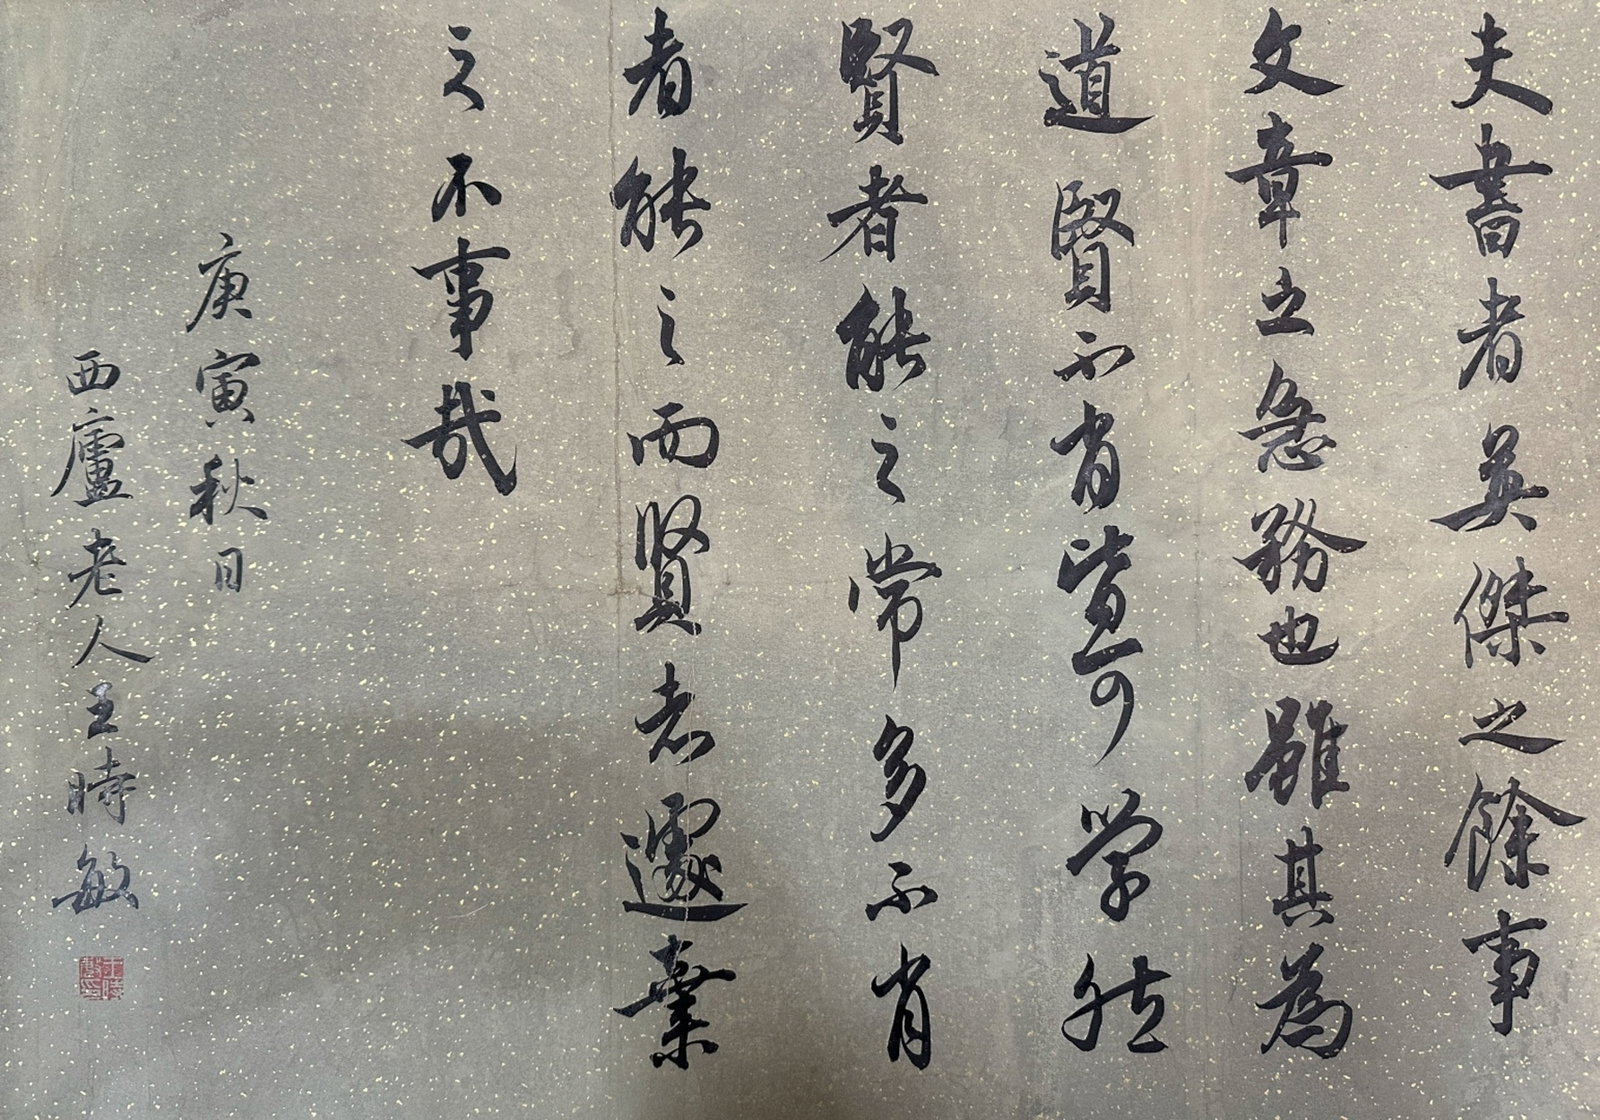 夫書者英傑之餘事
文章之急務也雖其為
道賢不肖皆可学然
賢者能之常多不肖
者能之而賢者遽棄
之不事哉
庚寅秋日
西廬老人王時敏
王時敏印